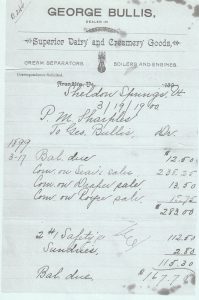 GEORGE BULLIS,
DEALER IN
Superior Dairy and Creamery Goods,
CREAM SEPARATORS, BOILERS AND ENGINES.
Correspondence Solicited.
Sheldon Springs, Vt
3/19/1900
P. M. Sharples
To Geo. Bullis, Dr.
1899
3-17 Bal. due $ 12.50
Com. on sales 238.25
Com. on sale 13.50
Com. on sale
$ 283.00
2 #1 Safety 112.50
Sundries 2.80
115.30
Bal. due $ 167.70